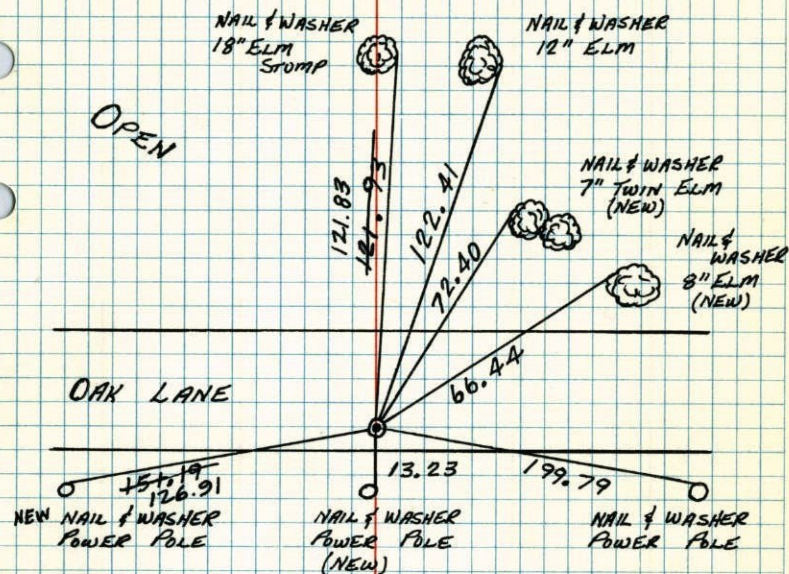 NAIL & WASHER
18" ELM
STUMP
NAIL & WASHER
12" ELM
OPEN
NAIL & WASHER
7" TWIN ELM
(NEW)
NAIL &
WASHER
8" ELM
(NEW)
121.83
121.93
122.41
72.40
66.44
OAK LANE
151.19
126.91
13.23
199.79
NEW NAIL & WASHER
POWER POLE
NAIL & WASHER
POWER POLE
(NEW)
NAIL & WASHER
POWER POLE